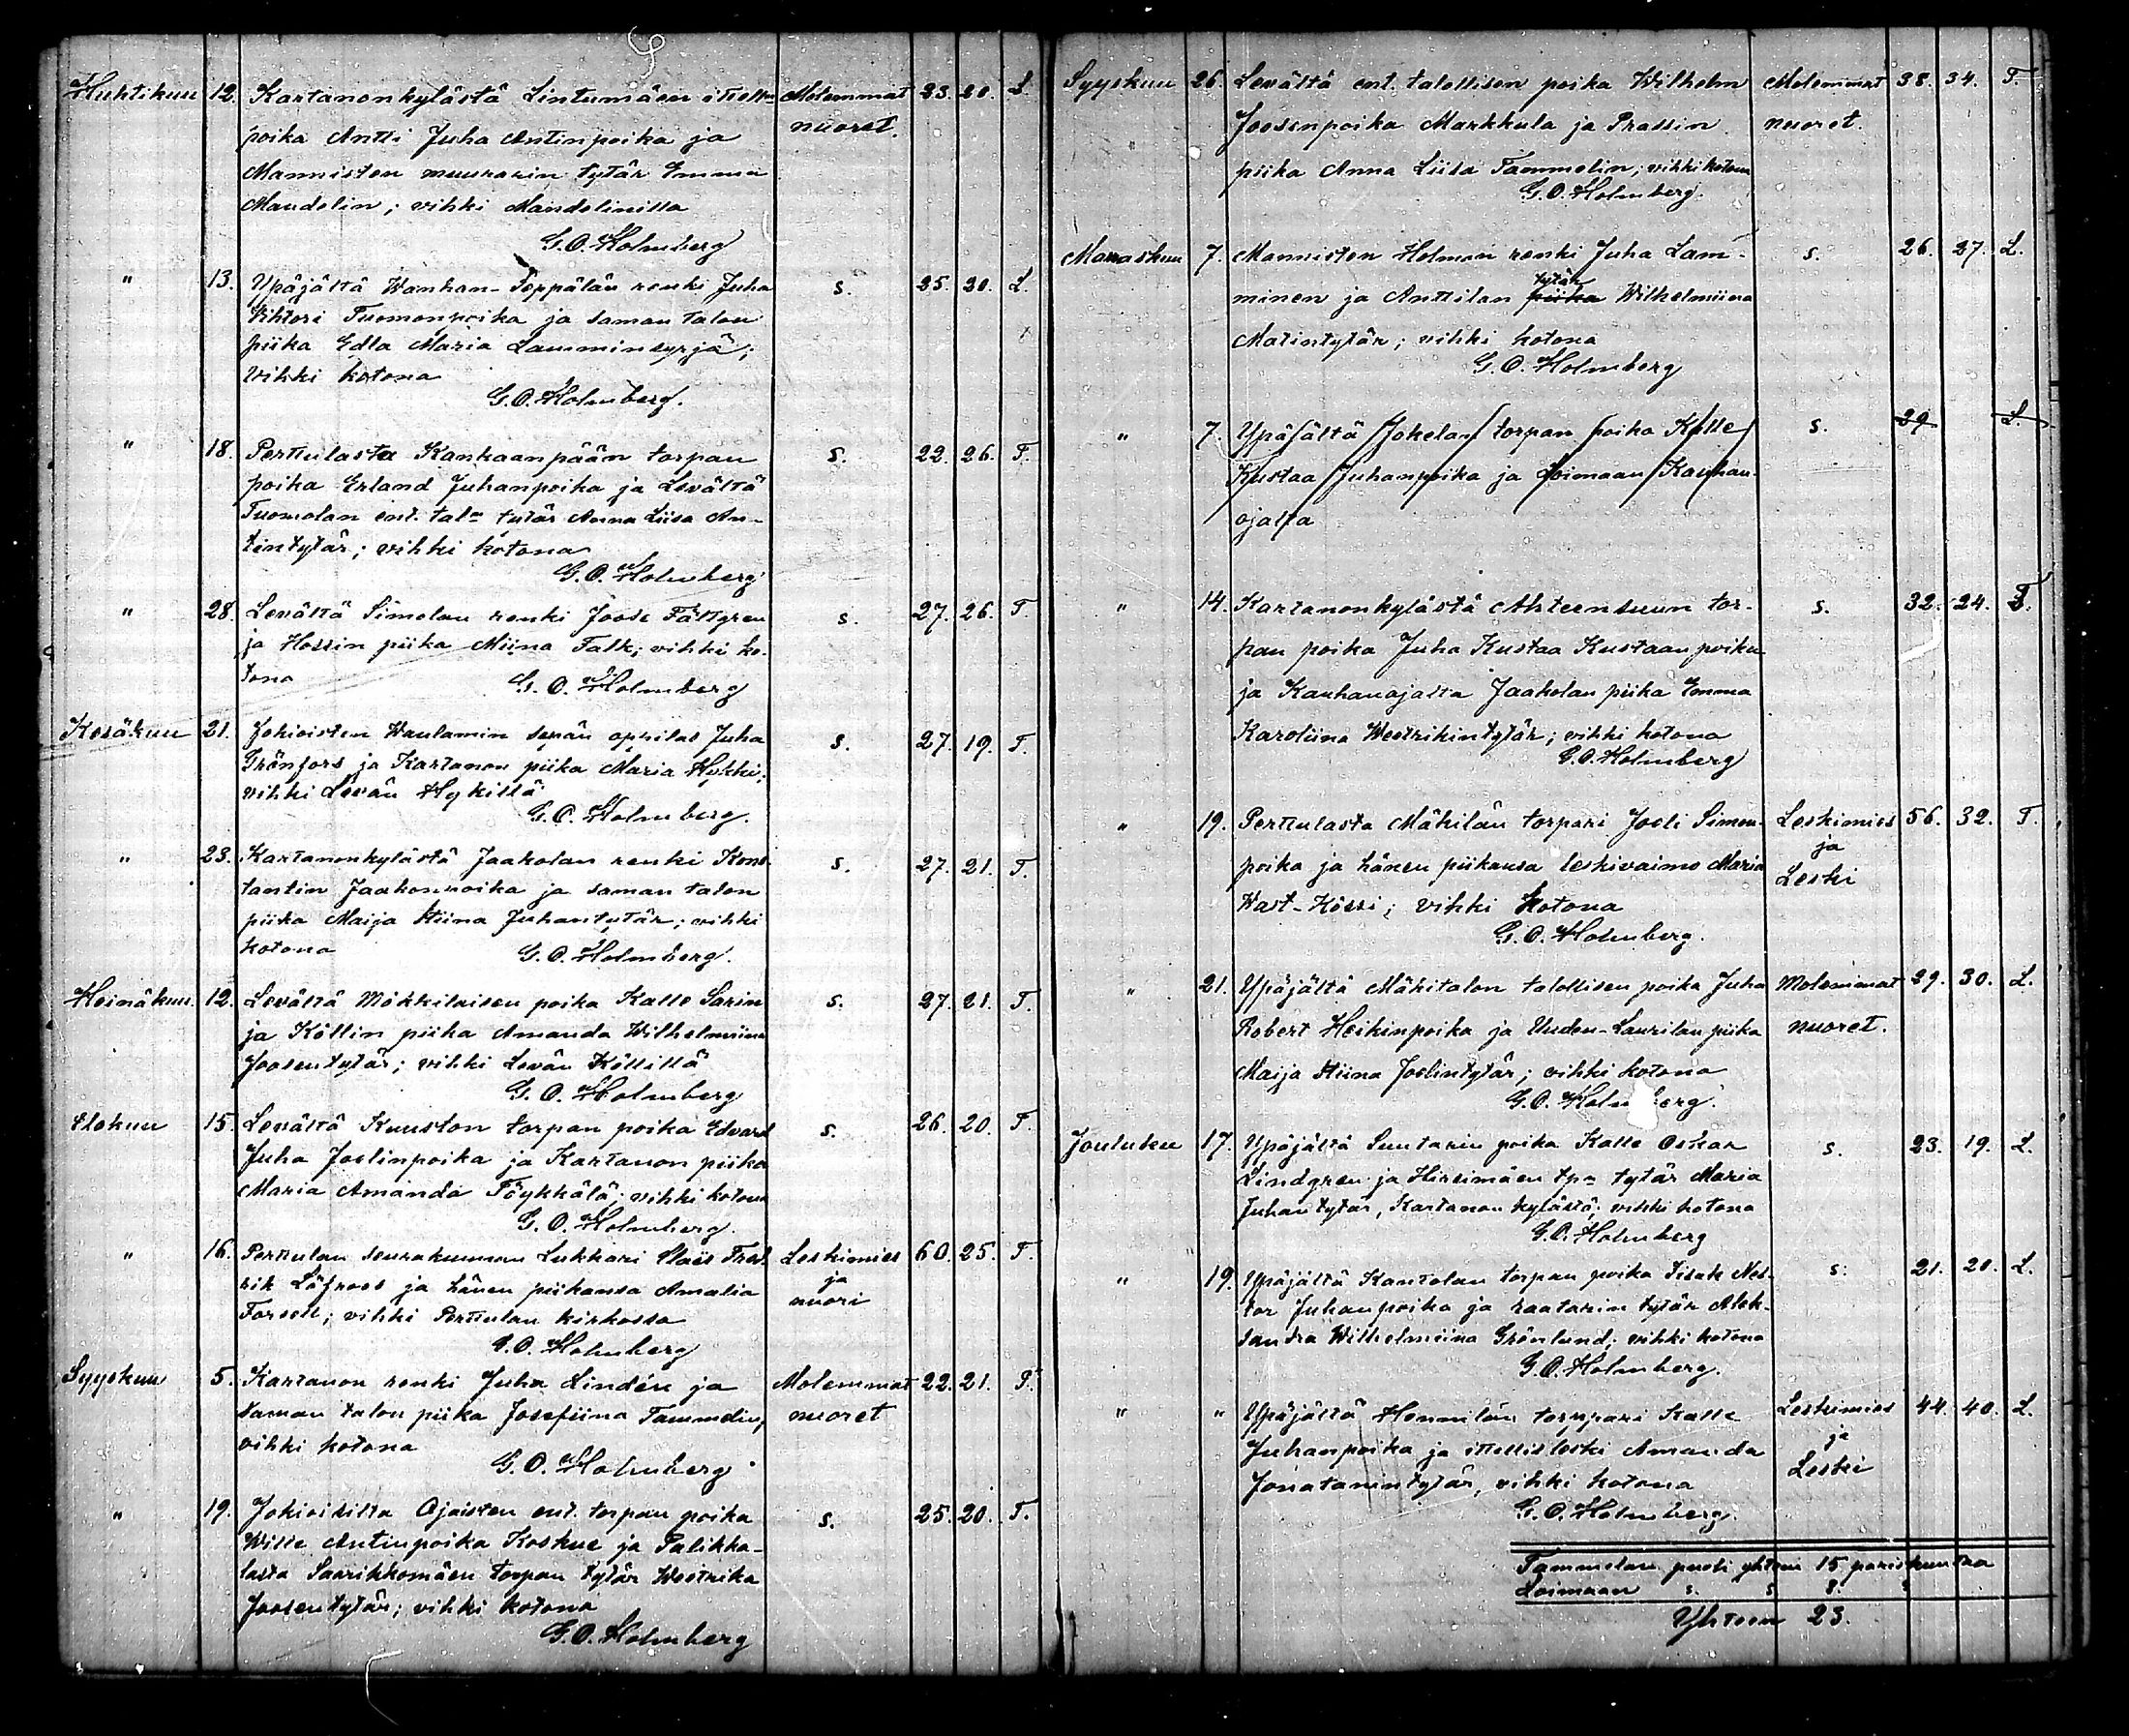 Huhtikuu 12. Kartanonkylästä Lintumäen itsell. Molemmat 23. 20. L.
poika Antti Juha Antinpoika ja nuoret.
Mannisten muurarin tytär Emma
Mandelin; vihki Mandelinilla
G.O. Holmberg
" 13. Ypäjältä Wanhan-Seppälän renki Juha s. 25. 20. L.
Vihtori Tuomonpoika ja saman talon
piika Edla Maria Lamminsyrjä;
vihki kotona
G.O. Holmberg.
" 18. Perttulasta Kankaanpään torpan s. 22. 26. T.
poika Erland Juhanpoika ja Levältä
Tuomolan ent. tal:n tytär Anna Liisa An-
tintytär; vihki kotona
G.O. Holmberg
" 28. Levältä Simolan renki Joose Fältgren s. 27. 26. T.
ja Hossin piika Miina Falk; vihki ko-
tona G.O. Holmberg
Kesäkuu 21. Jokioisten Waulamin sepän oppilas Juha s. 27. 19. T.
Grönfors ja Kartanon piika Maria Hykki;
vihki Levän Hykillä
G.O. Holmberg.
" 23. Kartanonkylästä Jaakolan renki Kons- s. 27. 21. T.
tantin Jaakonpoika ja saman talon
piika Maija Stiina Juhantytär; vihki
kotona G.O. Holmberg.
Heinäkuu 12. Levältä Mökkilaisen poika Kalle Sarin s. 27. 21. T.
ja Köllin piika Amanda Wilhelmiina
Joosentytär; vihki Levän Köllillä
G.O. Holmberg
Elokuu 15. Levältä Kuuston torpan poika Edvard s. 26. 20. T.
Juha Joelinpoika ja Kartanon piika
Maria Amanda Töykkälä; vihki kotona
G.O. Holmberg.
" 16. Perttulan seurakunnan Lukkari Claës Fred- Leskimies 60. 25. T.
rik Löfroos ja hänen piikansa Amalia ja
Forsell; vihki Perttulan kirkossa nuori
G.O. Holmberg
Syyskuu 5. Kartanon renki Juha Lindén ja Molemmat 22. 21. T.
saman talon piika Josefiina Tammelin, nuoret
vihki kotona
G.O. Holmberg
" 19. Jokioisilta Ojaisten ent. torpan poika s. 25. 20. T.
Wille Antinpoika Koskue ja Palikka-
lasta Saarikkomäen torpan tytär Westrika
Joosentytär; vihki kotona
G.O. Holmberg
Syyskuu 26. Levältä ent. talollisen poika Wilhelm Molemmat 38. 34. T.
Joosenpoika Markkula ja Prassin nuoret.
piika Anna Liisa Tammelin; vihki kotona
G.O. Holmberg.
Marraskuu 7. Mannisten Holman renki Juha Lam- s. 26. 27. L.
tytär
minen ja Anttilan piika Wilhelmiina
Matintytär; vihki kotona
G.O. Holmberg
" 7. Ypäjältä Jokelan torpan poika Kalle s. 29 L.
Kustaa Juhanpoika ja Loimaan Kauhan-
ojalta
" 14. Kartanonkylästä Ahteensuun tor- s. 32. 24. T.
pan poika Juha Kustaa Kustaanpoika
ja Kauhanojalta Jaakolan piika Emma
Karoliina Westrikintytär; vihki kotona
G.O. Holmberg
" 19. Perttulasta Mäkilän torpari Joeli Simon- Leskimies 56. 32. T.
poika ja hänen piikansa leskivaimo Maria ja
Wast-Kössi; vihki kotona Leski
G.O. Holmberg.
" 21. Ypäjältä Mäkitalon talollisen poika Juha Molemmat 29. 30. L.
Robert Heikinpoika ja Uuden-Laurilan piika nuoret.
Maija Stiina Joelintytär; vihki kotona
G.O. Holmberg.
Jouluku 17. Ypäjältä Suutarin poika Kalle Oskar s. 23. 19. L.
Lindgren ja Hirsimäen tp:n tytär Maria
Juhantytär, Kartanonkylästä; vihki kotona
G.O. Holmberg
" 19. Ypäjältä Kantolan torpan poika Iisak Nes- s. 21. 20. L.
tor Juhanpoika ja raatarin tytär Alek-
sandra Wilhelmiina Grönlund; vihki kotona
G.O. Holmberg.
" " Ypäjältä Hennilän torppari Kalle Leskimies 44. 40. L.
Juhanpoika ja itsellisleski Amanda ja
Jonatanintytär, vihki kotona Leski
G.O. Holmberg.
Tammelan puoli yhteen 15 pariskuntaa
Loimaan s. s 8. s
Yhteen 23.